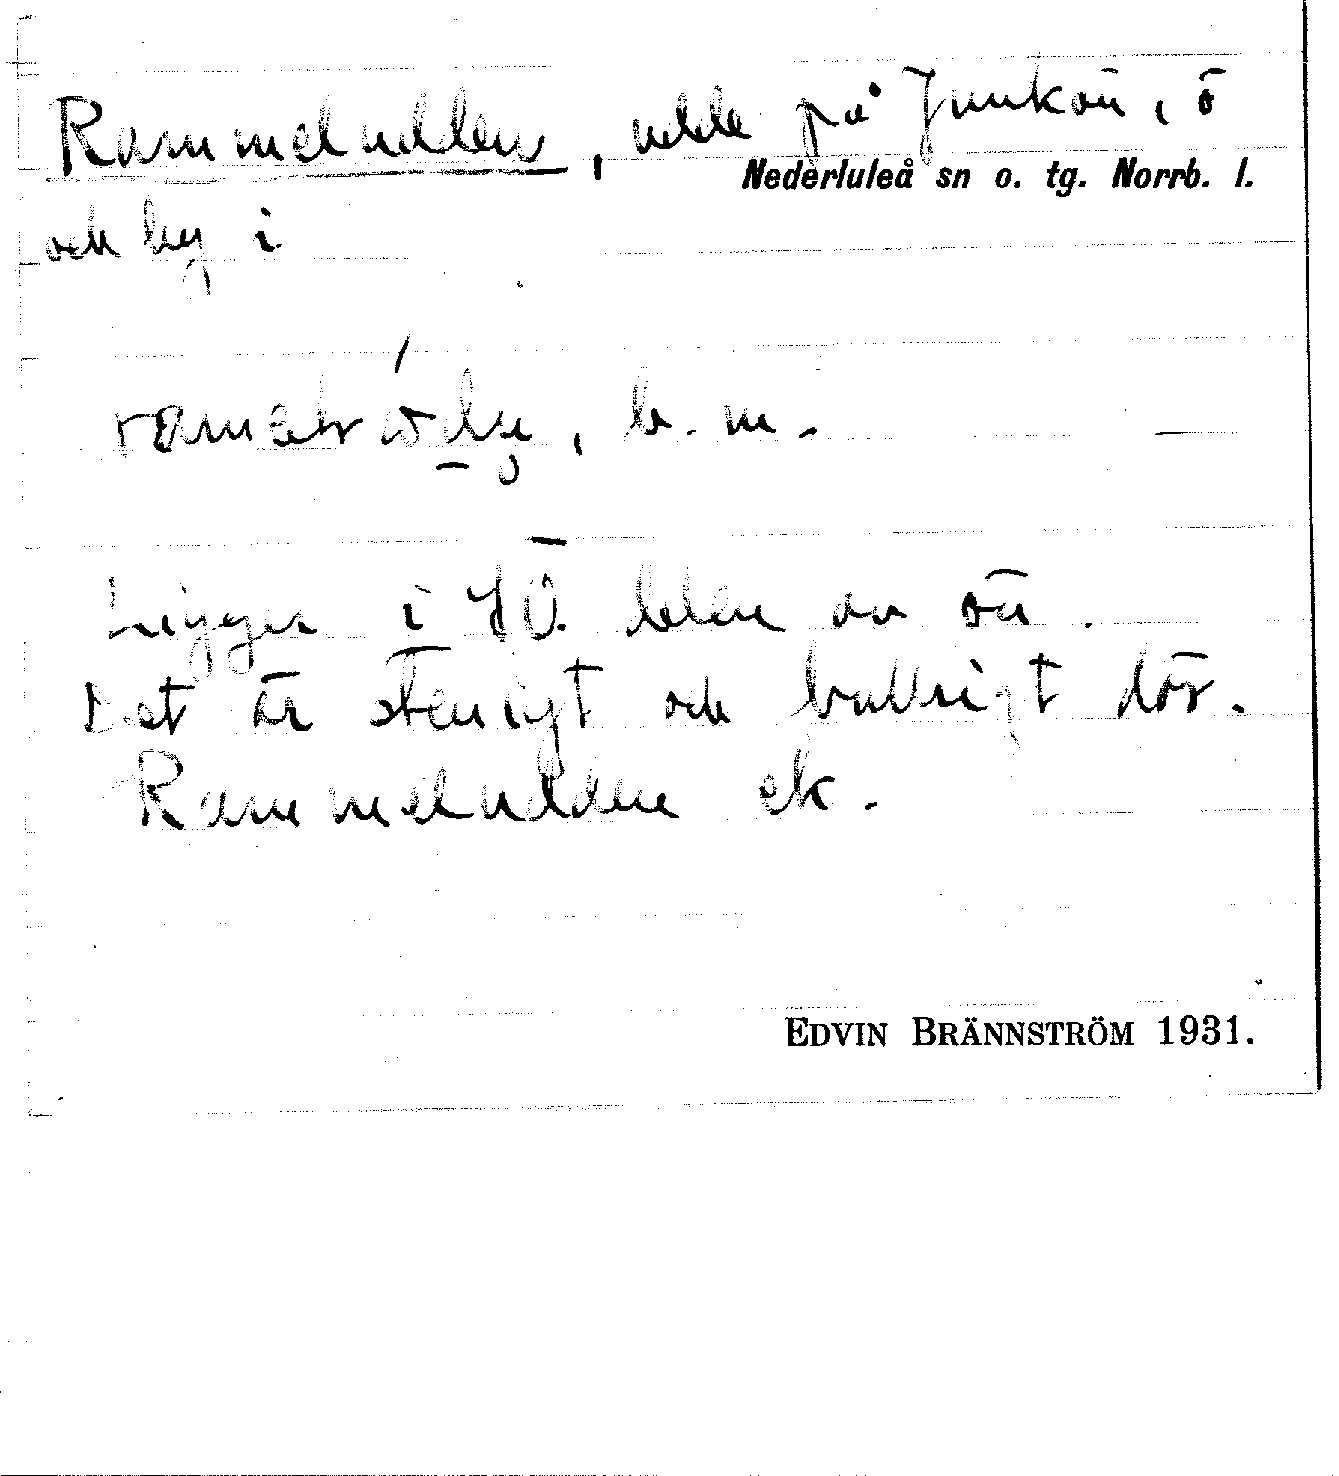 Rammeludden, udde på Junkön, ö
Nederluleå sn o. tg. Norrb. l.
och by i
b. m.
Ligger i SÖ. delen av ön.
Det är stenigt och bullrigt där.
Rammeludden ek.
EDVIN BRÄNNSTRÖM 1931.